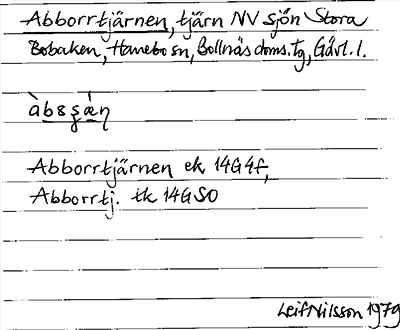 Abborrtjärnen, tjärn NV sjön Stora
Bobaken, Hanebo sn, Bollnäs doms. tg, Gävl. l.
Abborrtjärnen ek 14G4f,
Abborrtj. tk 14GSO
Leif Nilsson 1979